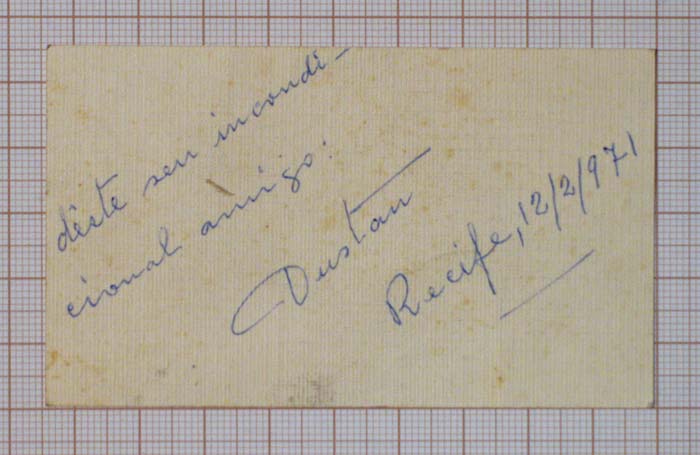 dêste seu incondi-
cional amigo:
Dustan
Recife, 12/2/971